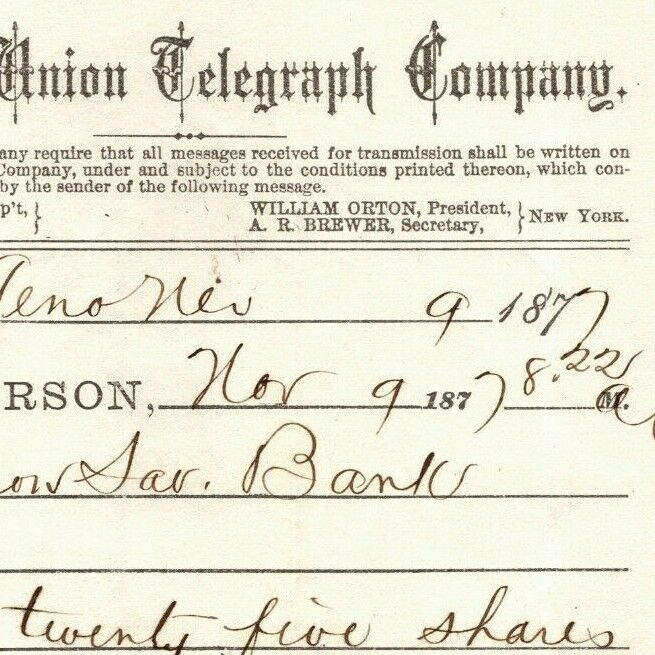 Union Telegraph Company.
any require that all messages received for transmission shall be written on
Company, under and subject to the conditions printed thereon, which con-
by the sender of the following message.
p't, } WILLIAM ORTON, President, } NEW YORK.
A. R. BREWER, Secretary,
eno Nev 9 1877
RSON, Nov 9 1877 8.22 M.
Sav. Bank
twenty five shares